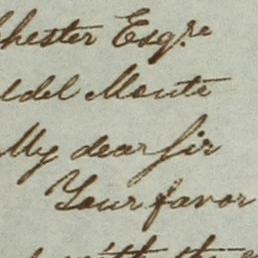 chester Esqre
eldel Monte
My dear Sir
Your favor
with the